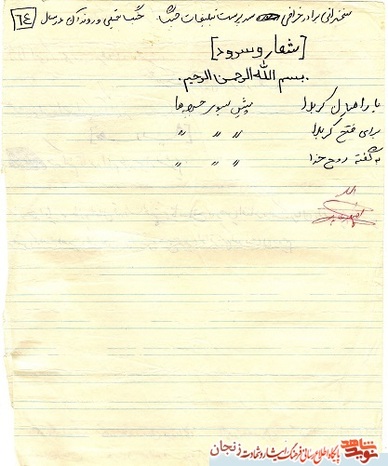 سخنرانی برادر خرافی سرپرست تبلیغات جنگ. جنگ قبلی و روند آن در سال ٦٤
[شعار و سرود]
بسم الله الرحمن الرحیم.
با راهیان کربلا پیش بسوی جبهه ها
برای فتح کربلا " " "
به گفته روح خدا " " "
نوید شاهد
پایگاه اطلاع رسانی فرهنگ ایثار و شهادت زنجان